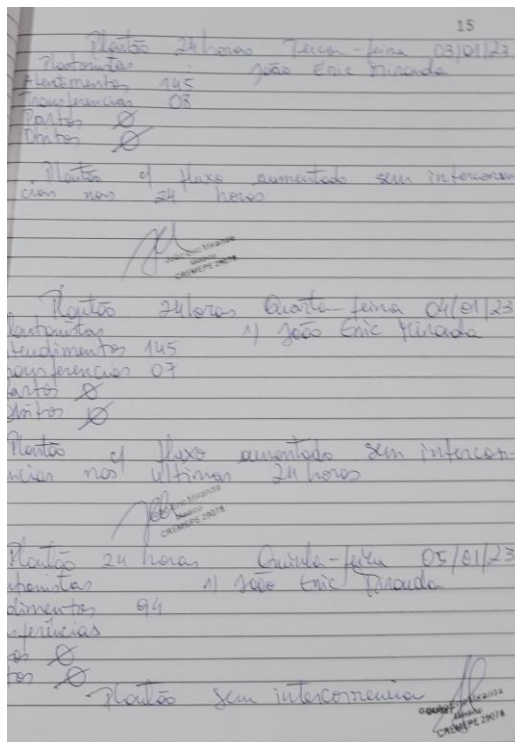 15
Plantão 24 horas Terça-feira 03/01/23
Plantonistas : João Eric Miranda
Atendimentos 145
Transferencias 08
Partos Ø
Obitos Ø
Plantão c/ fluxo aumentado sem intercorren
cias nas 24 horas
João Eric Miranda
Médico
CREMEPE 29078
Plantão 24 horas Quarta-feira 04/01/23
lantonistas 1) João Eric Miranda
tendimentos 145
ransferencias 07
artos Ø
bitos Ø
Plantão c/ fluxo aumentado sem intercor-
ncias nas ultimas 24 horas
Eric Miranda
Médico
CREMEPE 29078
Plantão 24 horas Quinta-feira 05/01/23
ntonistas 1) João Eric Miranda
dimentos 94
sferências
os Ø
tos Ø
Plantão sem intercorrencia
Eric Miranda
Médico
CREMEPE 29078